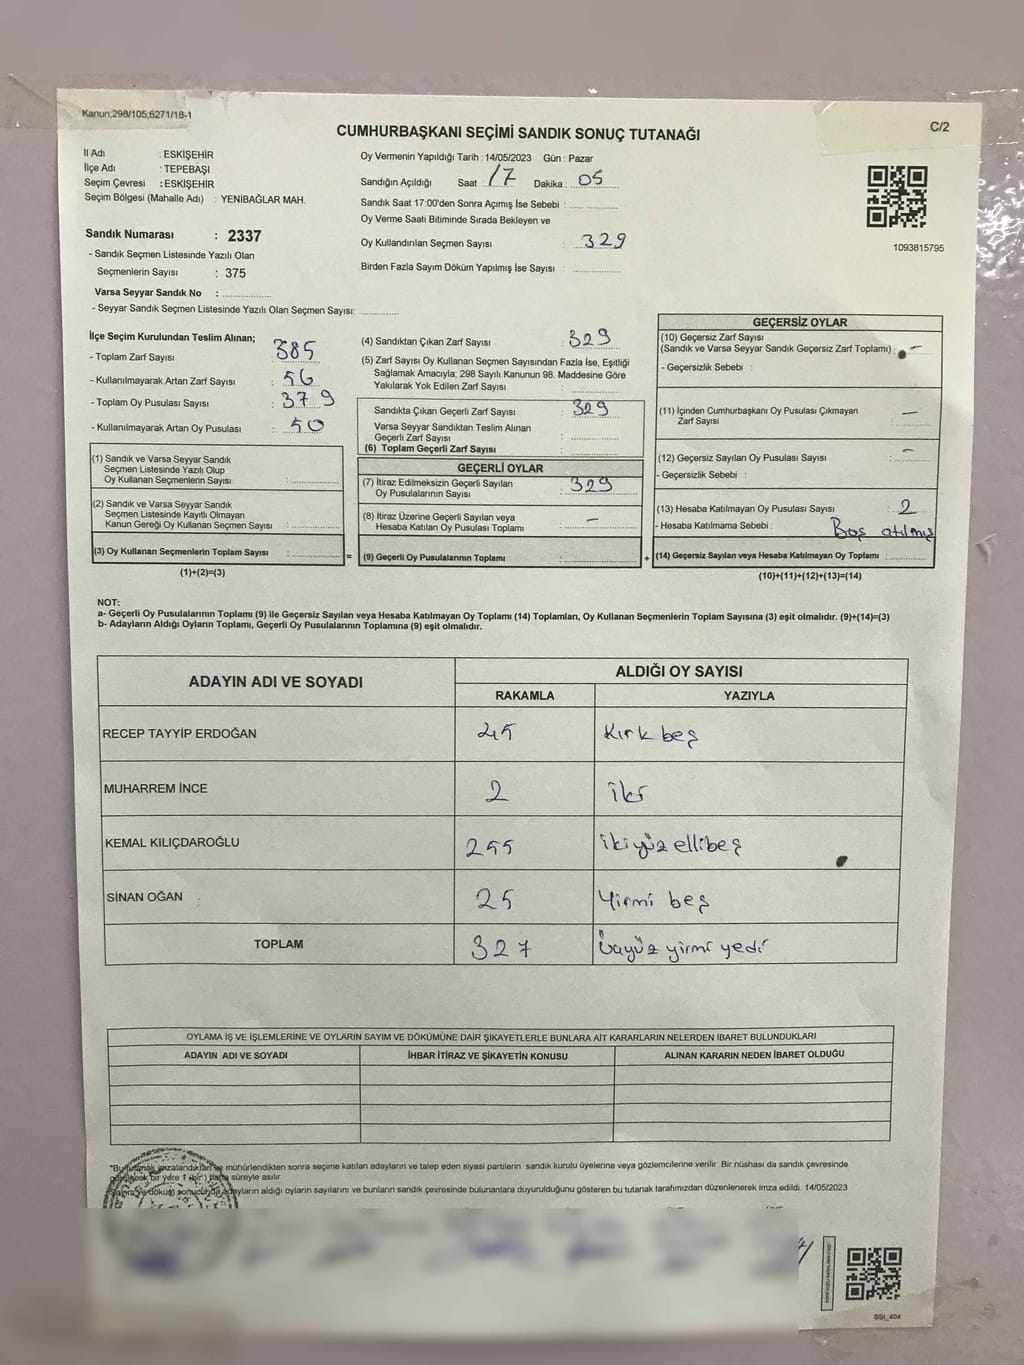 Kanun;298/105;6271/18-1
C/2
CUMHURBAŞKANI SEÇİMİ SANDIK SONUÇ TUTANAĞI
İl Adı : ESKİŞEHİR
İlçe Adı : TEPEBAŞI
Seçim Çevresi : ESKİŞEHİR
Seçim Bölgesi (Mahalle Adı) : YENİBAĞLAR MAH.
Sandık Numarası : 2337
- Sandık Seçmen Listesinde Yazılı Olan
Seçmenlerin Sayısı : 375
Varsa Seyyar Sandık No :
- Seyyar Sandık Seçmen Listesinde Yazılı Olan Seçmen Sayısı:
Oy Vermenin Yapıldığı Tarih : 14/05/2023 Gün : Pazar
Sandığın Açıldığı Saat : 17 Dakika : 05
Sandık Saat 17:00'den Sonra Açımış İse Sebebi :
Oy Verme Saati Bitiminde Sırada Bekleyen ve
Oy Kullandırılan Seçmen Sayısı : 329
Birden Fazla Sayım Döküm Yapılmış İse Sayısı :
1093815795
İlçe Seçim Kurulundan Teslim Alınan;
- Toplam Zarf Sayısı : 385
- Kullanılmayarak Artan Zarf Sayısı : 56
- Toplam Oy Pusulası Sayısı : 379
- Kullanılmayarak Artan Oy Pusulası : 50
(1) Sandık ve Varsa Seyyar Sandık
Seçmen Listesinde Yazılı Olup
Oy Kullanan Seçmenlerin Sayısı :
(2) Sandık ve Varsa Seyyar Sandık
Seçmen Listesinde Kayıtlı Olmayan
Kanun Gereği Oy Kullanan Seçmen Sayısı :
(3) Oy Kullanan Seçmenlerin Toplam Sayısı :
(1)+(2)=(3)
=
(4) Sandıktan Çıkan Zarf Sayısı : 329
(5) Zarf Sayısı Oy Kullanan Seçmen Sayısından Fazla İse, Eşitliği
Sağlamak Amacıyla; 298 Sayılı Kanunun 98. Maddesine Göre
Yakılarak Yok Edilen Zarf Sayısı :
Sandıkta Çıkan Geçerli Zarf Sayısı : 329
Varsa Seyyar Sandıktan Teslim Alınan
Geçerli Zarf Sayısı :
(6) Toplam Geçerli Zarf Sayısı
GEÇERLİ OYLAR
(7) İtiraz Edilmeksizin Geçerli Sayılan
Oy Pusulalarının Sayısı : 329
(8) İtiraz Üzerine Geçerli Sayılan veya
Hesaba Katılan Oy Pusulası Toplamı : -
(9) Geçerli Oy Pusulalarının Toplamı :
+
GEÇERSİZ OYLAR
(10) Geçersiz Zarf Sayısı
(Sandık ve Varsa Seyyar Sandık Geçersiz Zarf Toplamı) : -
- Geçersizlik Sebebi :
(11) İçinden Cumhurbaşkanı Oy Pusulası Çıkmayan
Zarf Sayısı : -
(12) Geçersiz Sayılan Oy Pusulası Sayısı : -
- Geçersizlik Sebebi :
(13) Hesaba Katılmayan Oy Pusulası Sayısı : 2
- Hesaba Katılmama Sebebi : Boş atılmış
(14) Geçersiz Sayılan veya Hesaba Katılmayan Oy Toplamı :
(10)+(11)+(12)+(13)=(14)
NOT:
a- Geçerli Oy Pusulalarının Toplamı (9) ile Geçersiz Sayılan veya Hesaba Katılmayan Oy Toplamı (14) Toplamları, Oy Kullanan Seçmenlerin Toplam Sayısına (3) eşit olmalıdır. (9)+(14)=(3)
b- Adayların Aldığı Oyların Toplamı, Geçerli Oy Pusulalarının Toplamına (9) eşit olmalıdır.
ADAYIN ADI VE SOYADI
ALDIĞI OY SAYISI
RAKAMLA YAZIYLA
RECEP TAYYİP ERDOĞAN 45 Kırk beş
MUHARREM İNCE 2 iki
KEMAL KILIÇDAROĞLU 255 ikiyüz ellibeş
SİNAN OĞAN 25 Yirmi beş
TOPLAM 327 üçyüz yirmi yedi
OYLAMA İŞ VE İŞLEMLERİNE VE OYLARIN SAYIM VE DÖKÜMÜNE DAİR ŞİKAYETLERLE BUNLARA AİT KARARLARIN NELERDEN İBARET BULUNDUKLARI
ADAYIN ADI VE SOYADI İHBAR İTİRAZ VE ŞİKAYETİN KONUSU ALINAN KARARIN NEDEN İBARET OLDUĞU
*Bu tutanak imzalandıktan ve mühürlendikten sonra seçime katılan adayların ve talep eden siyasi partilerin sandık kurulu üyelerine veya gözlemcilerine verilir Bir nüshası da sandık çevresinde
bir yere 1 (bir) hafta süreyle asılır
Sayım ve döküm sonucunda adayların aldığı oyların sayılarını ve bunların sandık çevresinde bulunanlara duyurulduğunu gösteren bu tutanak tarafımızdan düzenlenerek imza edildi. 14/05/2023
SSI_404